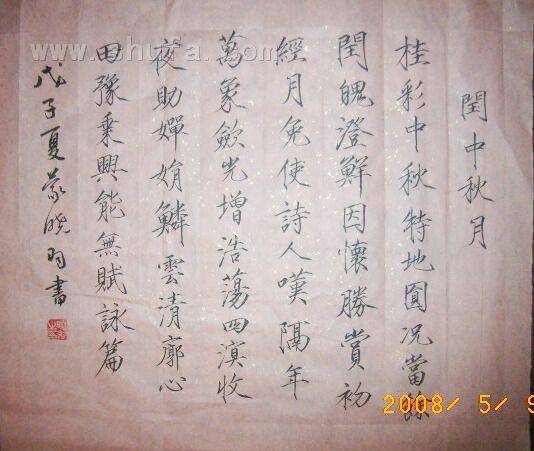 閏中秋月
桂彩中秋特地圓況當餘
閏魄澄鮮因懷勝賞初
經月免使詩人嘆隔年
萬象歛光增浩蕩四溟收
夜助嬋娟鱗雲清廓心
田豫乘興能無賦詠篇
戊子夏曉書
www.shufa.com
2008/ 5/ 9